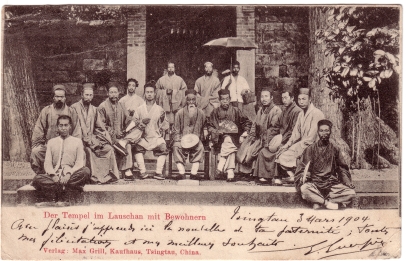 Der Tempel im Lauschan mit Bewohnern
Tsingtau 3 Mars 1904
j'apprends ici la nouvelle de ta paternité, Toutes
mes félicitations et my meilleurs souhaits.
Verlag: Max Grill, Kaufhaus, Tsingtau, China.